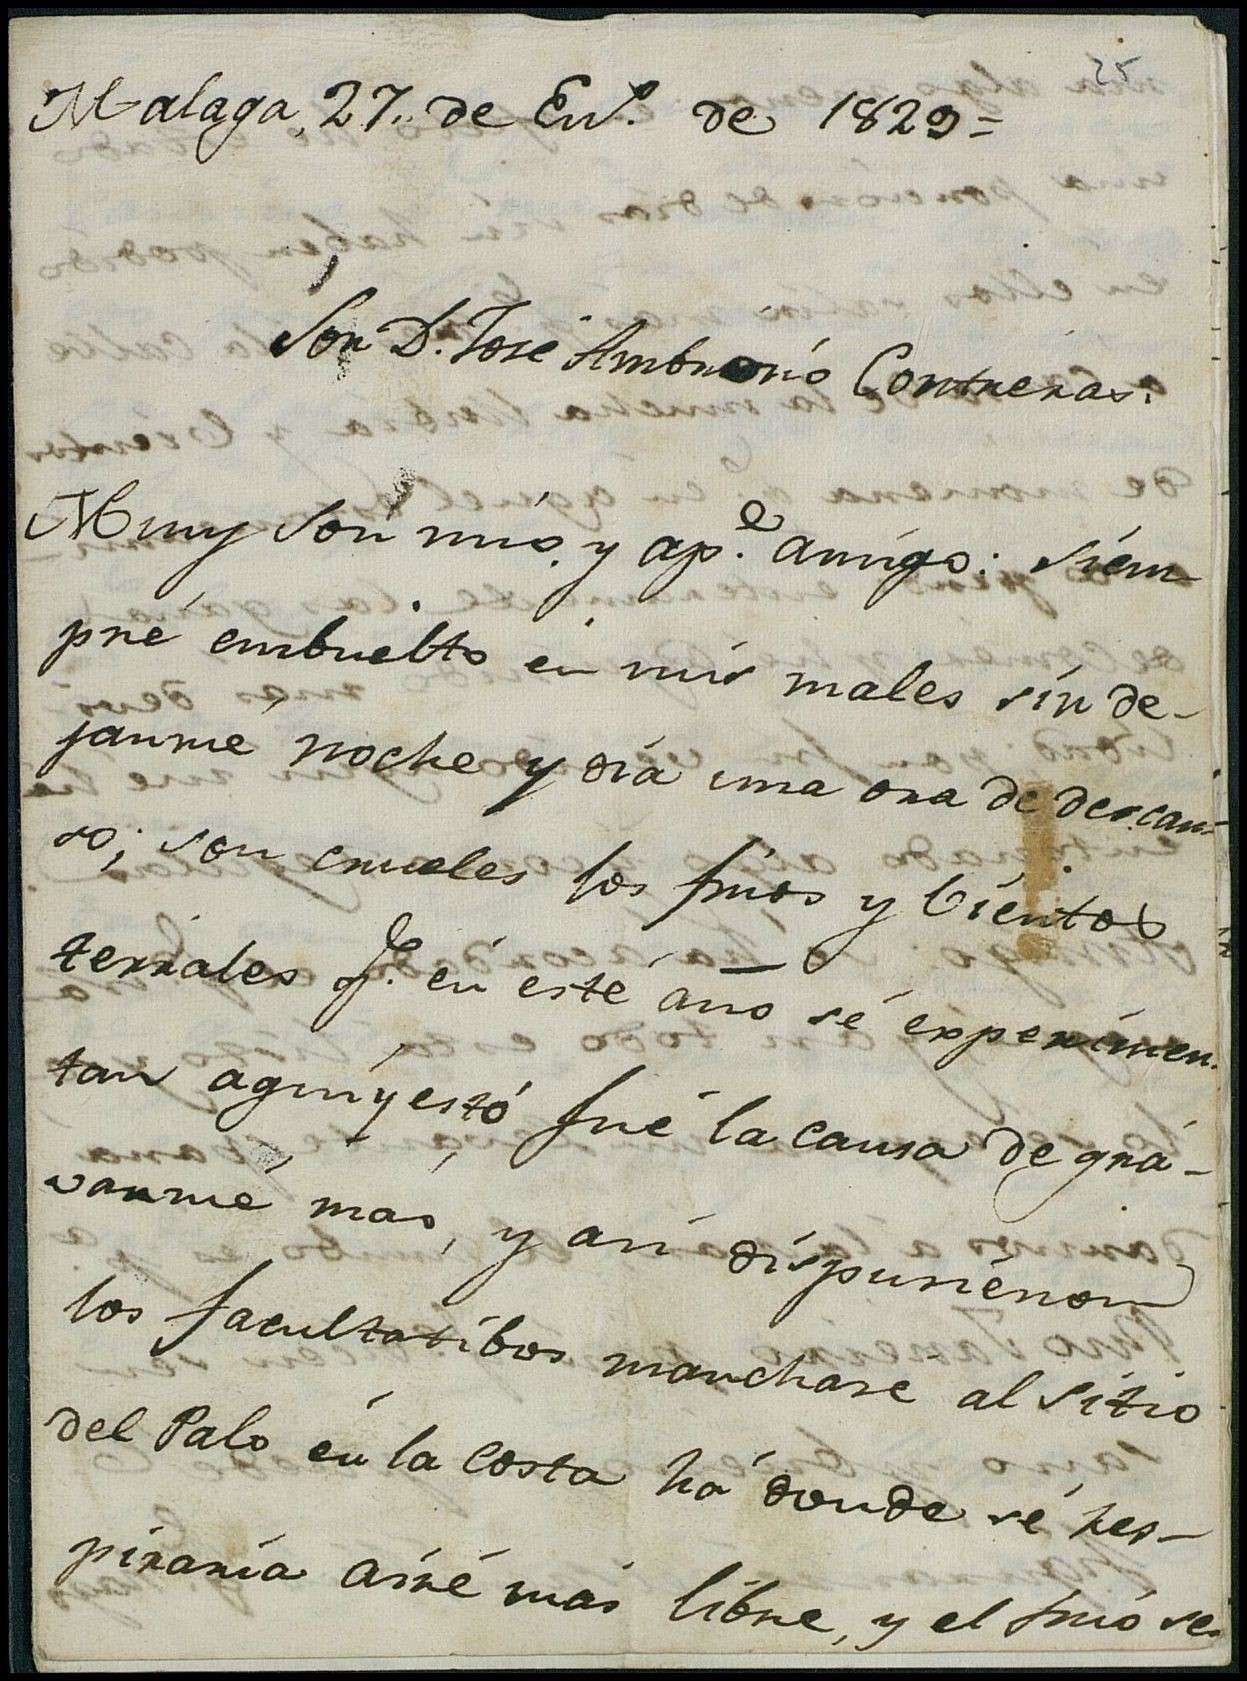 25
Malaga, 27,, de En.º de 1829=
Sor. D. José Ambrosio Contreras.
Muy Sor. mio, y ap.e amigo: Siem
pre embuelto en mis males sin de-
jarme noche y dia una ora de descan-
so; son crueles los frios y bientos
terrales q.e en este año se experimen.
tan aqui, y estó fué la causa de gra-
varme mas, y asi dispusieron
los facultatibos marchase al sitio
del Palo en la costa há donde sé res-
piraria aire mas libre, y el frio se-